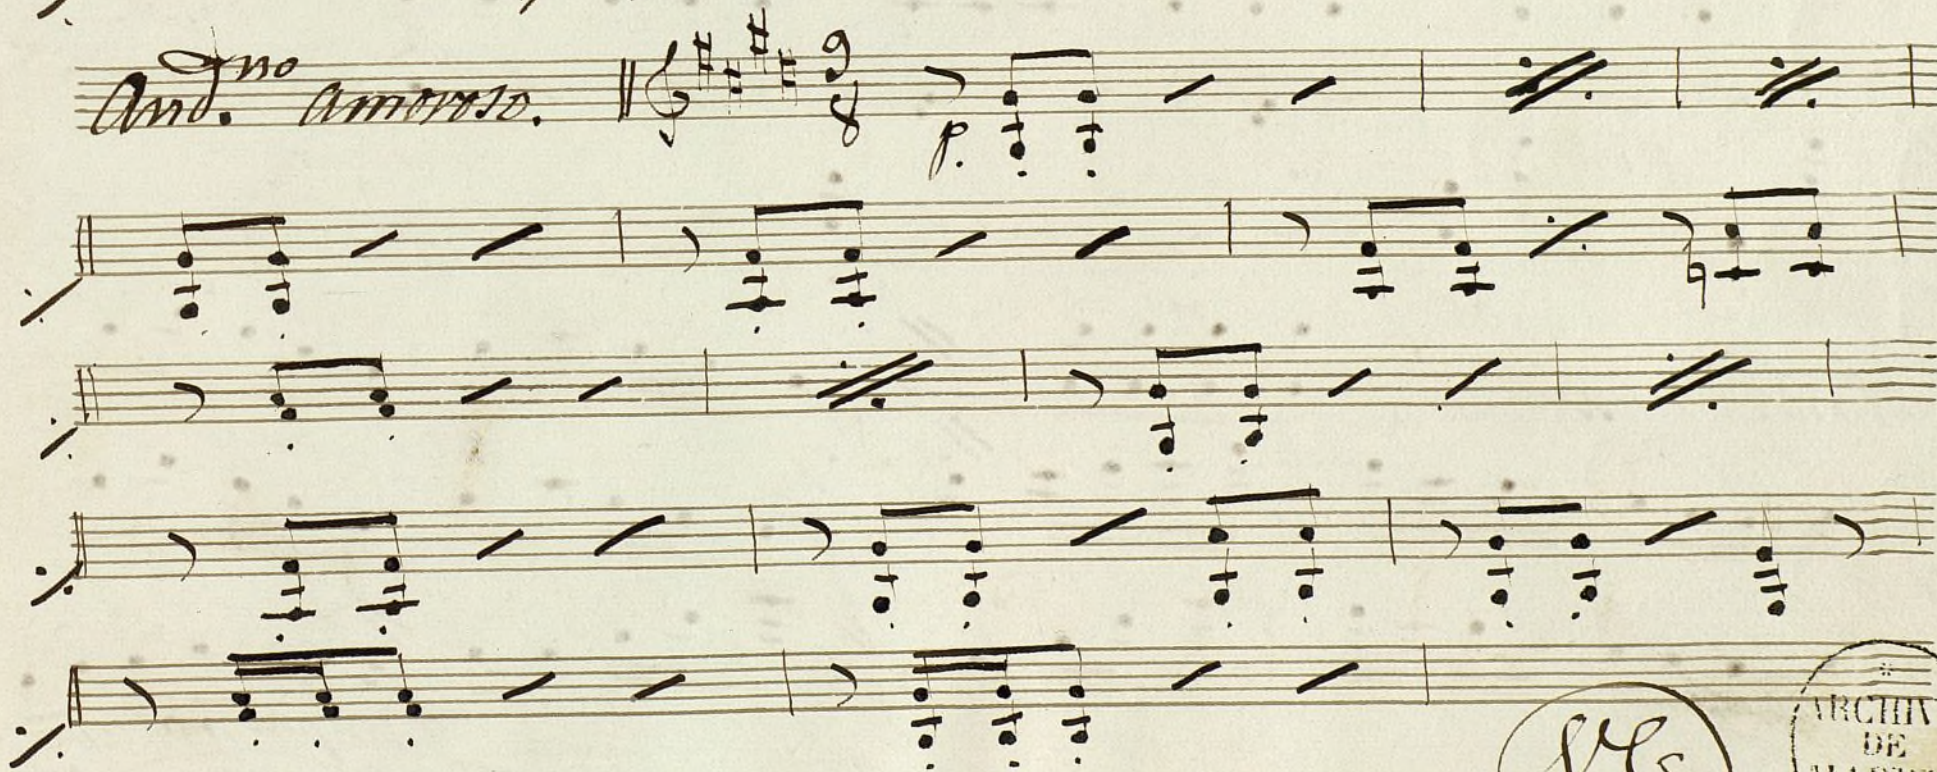 And.no amoroso.
9
8
p.
ARCHIV
DE